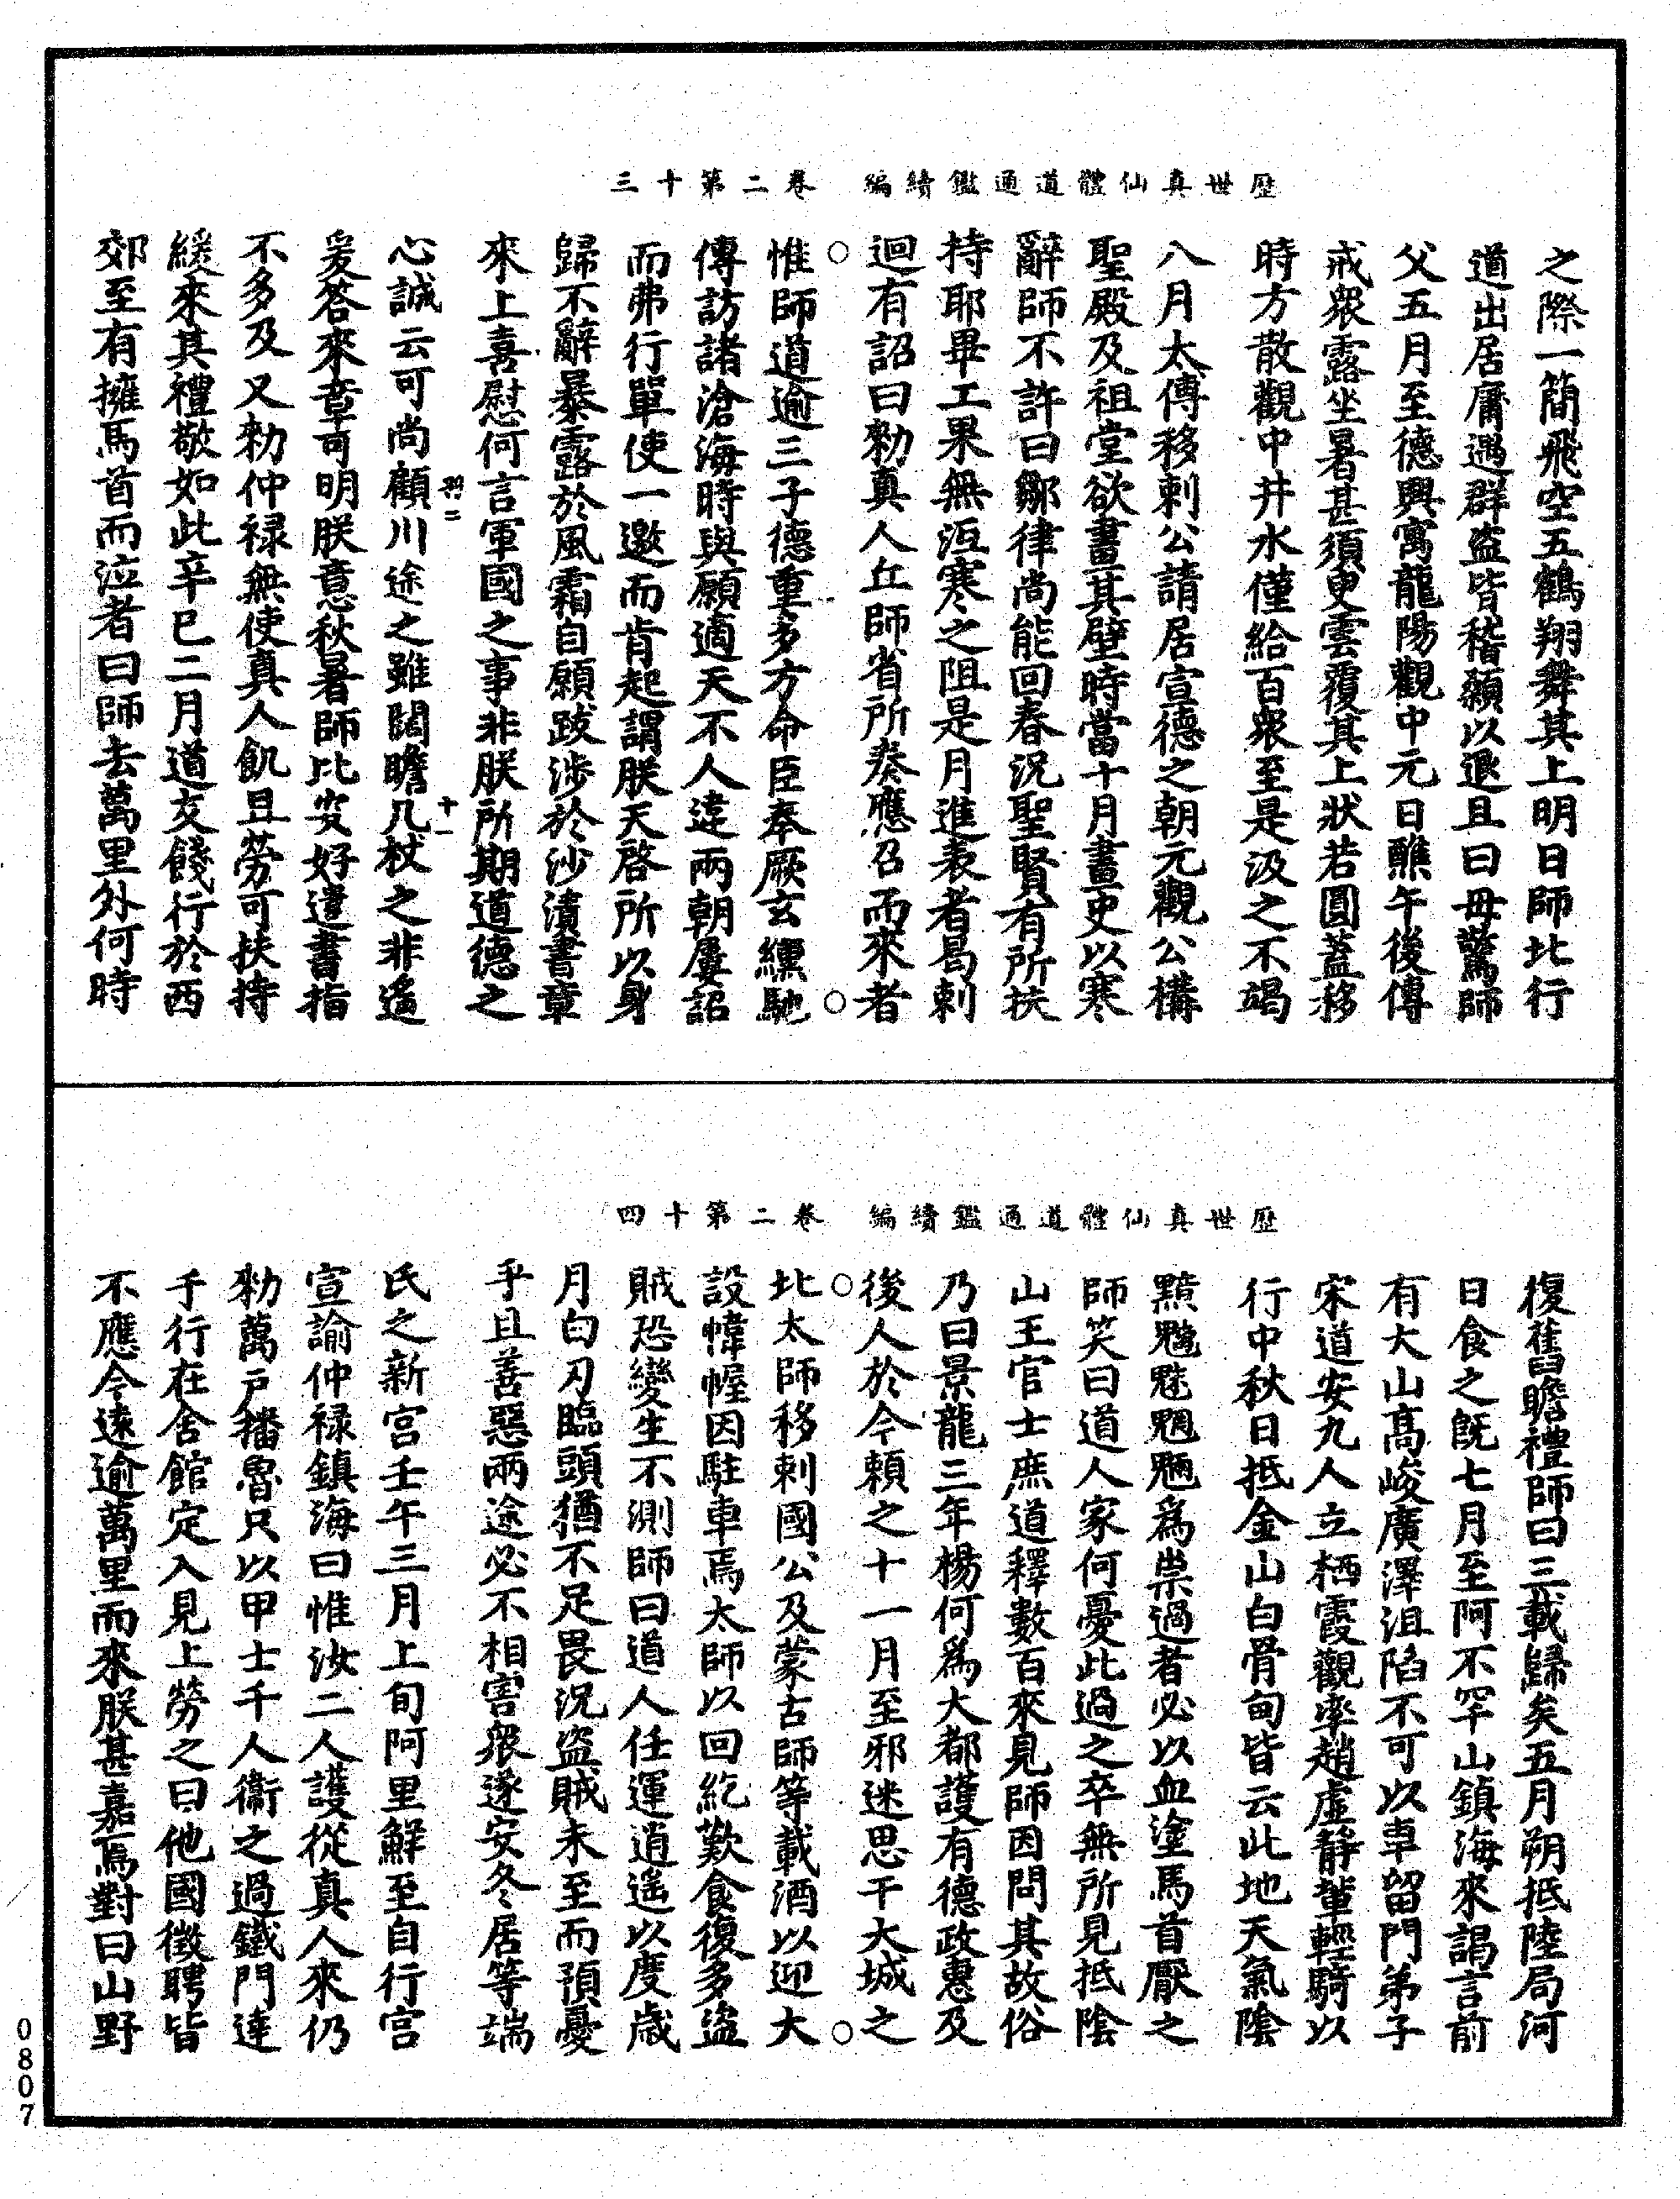 歷世真仙體道通鑑續編　卷二第十三
之際一簡飛空五鶴翔舞其上明日師北行
道出居庸遇群盜皆稽顙以退且曰毋驚師
父五月至德興寓龍陽觀中元日醮午後傳
戒眾露坐暑甚須臾雲覆其上狀若圓蓋移
時方散觀中井水僅給百眾至是汲之不竭
八月太傅移剌公請居宣德之朝元觀公構
聖殿及祖堂欲畫其壁時當十月畫史以寒
辭師不許曰鄒律尚能回春況聖賢有所扶
持耶畢工果無沍寒之阻是月進表者曷剌
迴有詔曰勑真人丘師省所奏應召而來者
○惟師道逾三子德重多方命臣奉厥玄纁馳○
傳訪諸滄海時與願適天不人違兩朝屢詔
而弗行單使一邀而肯起謂朕天啓所以身
歸不辭暴露於風霜自願跋涉於沙漬書章
來上喜慰何言軍國之事非朕所期道德之
心誠云可尚顧川途之雖闊瞻几杖之非遙
爰答來章可明朕意秋暑師比安好遣書指
不多及又勑仲祿無使真人飢且勞可扶持
緩來其禮敬如此辛巳二月道友餞行於西
郊至有擁馬首而泣者曰師去萬里外何時
十一
歷世真仙體道通鑑續編　卷二第十四
復舊瞻禮師曰三載歸矣五月朔抵陸局河
日食之既七月至阿不罕山鎮海來謁言前
有大山高峻廣澤沮陷不可以車留門弟子
宋道安九人立栖霞觀率趙虛靜輩輕騎以
行中秋日抵金山白骨甸皆云此地天氣陰
黯魑魅魍魎為祟過者必以血塗馬首厭之
師笑曰道人家何憂此過之卒無所見抵陰
山王官士庶道釋數百來見師因問其故俗
乃曰景龍三年楊何為大都護有德政惠及
後人於今賴之十一月至邪迷思干大城之
○北太師移剌國公及蒙古師等載酒以迎大○
設幃幄因駐車焉太師以回紇歎食復多盜
賊恐變生不測師曰道人任運逍遙以度歲
月白刃臨頭猶不足畏況盜賊未至而預憂
乎且善惡兩途必不相害眾遂安冬居等端
氏之新宮壬午三月上旬阿里鮮至自行宮
宣諭仲祿鎮海曰惟汝二人護從真人來仍
勑萬戶播魯只以甲士千人衛之過鐵門達
于行在舍館定入見上勞之曰他國徵聘皆
不應今遠逾萬里而來朕甚嘉焉對曰山野
0807